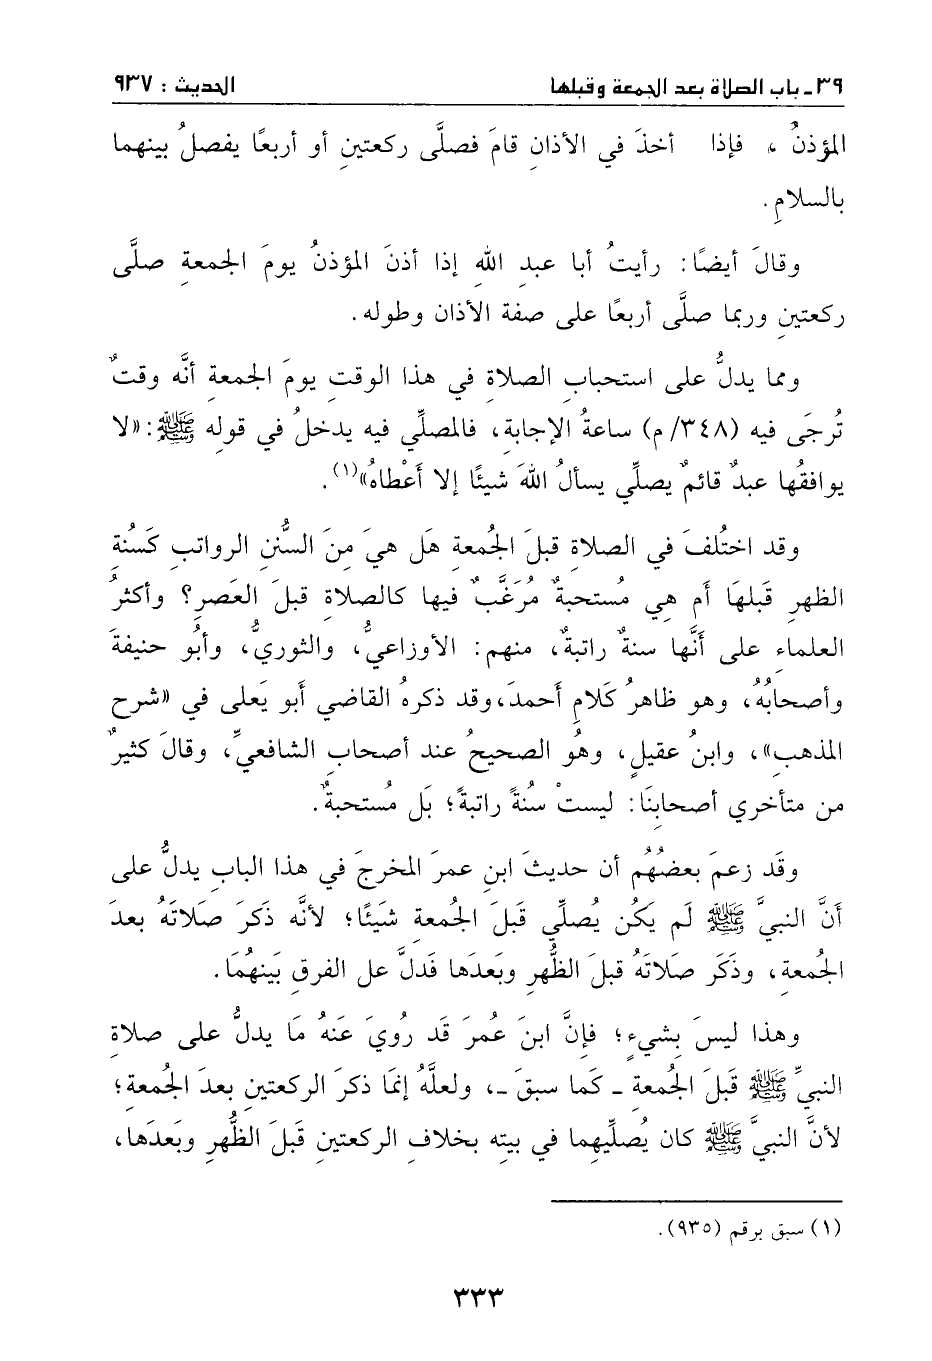 ٣٩ـ باب الصلاة بعد الجمعة وقبلها
الحديث : ٩٣٧
المؤذنُ ، فإذا أخذَ في الأذانِ قامَ فصلَّى ركعتينِ أو أربعًا يفصلُ بينهما
بالسلامِ .
وقالَ أيضًا: رأيتُ أبا عبدِ اللهِ إذا أذنَ المؤذنُ يومَ الجمعةِ صلَّى
ركعتينِ وربما صلَّى أربعًا على صفة الأذان وطوله.
ومما يدلُّ على استحبابِ الصلاةِ في هذا الوقتِ يومَ الجمعةِ أنَّه وقتٌ
تُرجَى فيه (٣٤٨/ م) ساعةُ الإجابةِ، فالمصلِّي فيه يدخلُ في قولِه ﷺ: «لا
يوافقُها عبدٌ قائمٌ يصلِّي يسألُ اللهَ شيئًا إلا أَعْطاهُ»(١).
وقد اختُلفَ في الصلاةِ قبلَ الجُمعةِ هَل هيَ مِنَ السُّننِ الرواتبِ كَسُنةِ
الظهرِ قَبلهَا أَم هي مُستحبةٌ مُرَغَّبٌ فيها كالصلاةِ قبلَ العَصرِ؟ وأكثرُ
العلماءِ على أَنَّها سنةٌ راتبةٌ، منهم: الأوزاعيُّ، والثوريُّ، وأبُو حنيفةَ
وأصحابُهُ، وهو ظاهرُ كَلامِ أَحمدَ، وقد ذكرهُ القاضي أَبو يَعلى في «شرح
المذهبِ»، وابنُ عقيلٍ، وهُو الصحيحُ عند أصحابِ الشافعيِّ، وقالَ كثيرٌ
من متأخري أصحابِنَا: ليستْ سُنةً راتبةً؛ بَل مُستحبةٌ.
وقَد زعمَ بعضُهُم أن حديثَ ابنِ عمرَ المخرجَ في هذا البابِ يدلُّ على
أَنَّ النبيَّ ﷺ لَم يَكُن يُصلِّي قَبلَ الجُمعةِ شَيئًا؛ لأنَّه ذَكرَ صَلاتَهُ بعدَ
الجُمعةِ، وذَكَر صَلاتَهُ قبلَ الظُّهرِ وبَعدَها فَدلَّ عل الفرقِ بَينهُمَا.
وهذا ليسَ بِشيءٍ؛ فإنَّ ابنَ عُمرَ قَد رُويَ عَنهُ مَا يدلُّ على صلاةِ
النبيِّ ﷺ قَبلَ الجُمعةِ ـ كَما سبقَ ـ، ولعلَّهُ إنمَا ذكرَ الركعتينِ بعدَ الجُمعةِ؛
لأنَّ النبيَّ ﷺ كان يُصلِّيهِما في بيتِه بخلافِ الركعتينِ قَبلَ الظُّهرِ وبَعدَها،
(١) سبق برقم (٩٣٥).
٣٣٣